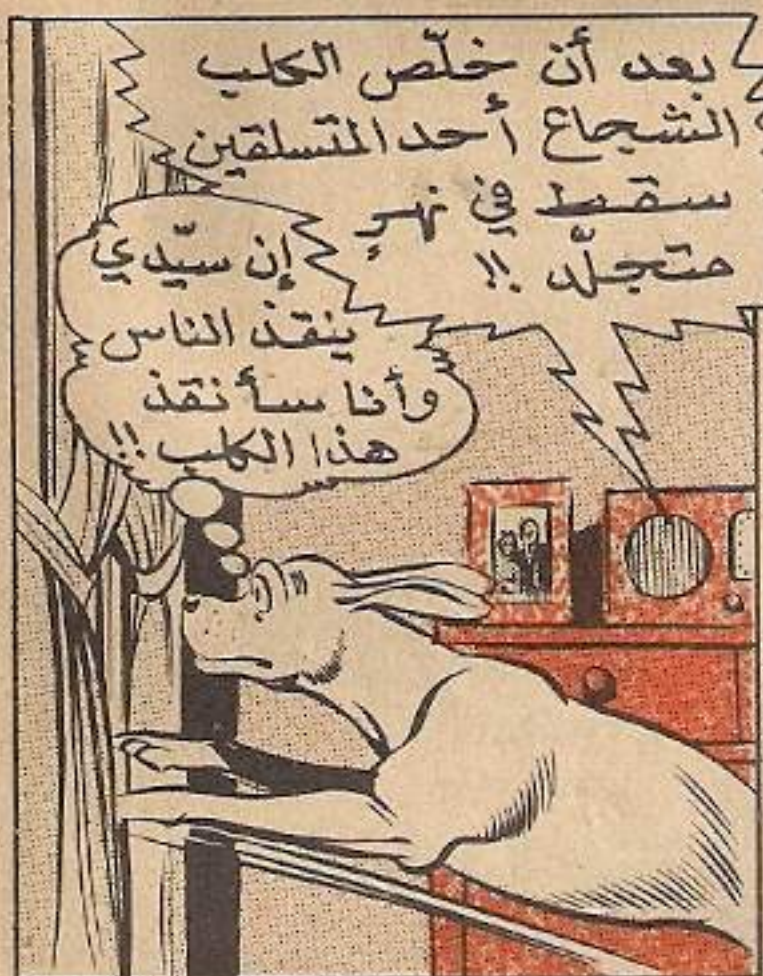 بعد أن خلّص الكلب
الشجاع أحد المتسلقين
سقط في نهرٍ
متجلّد !!
إن سيّدي
ينقذ الناس
وأنا سأنقذ
هذا الكلب !!